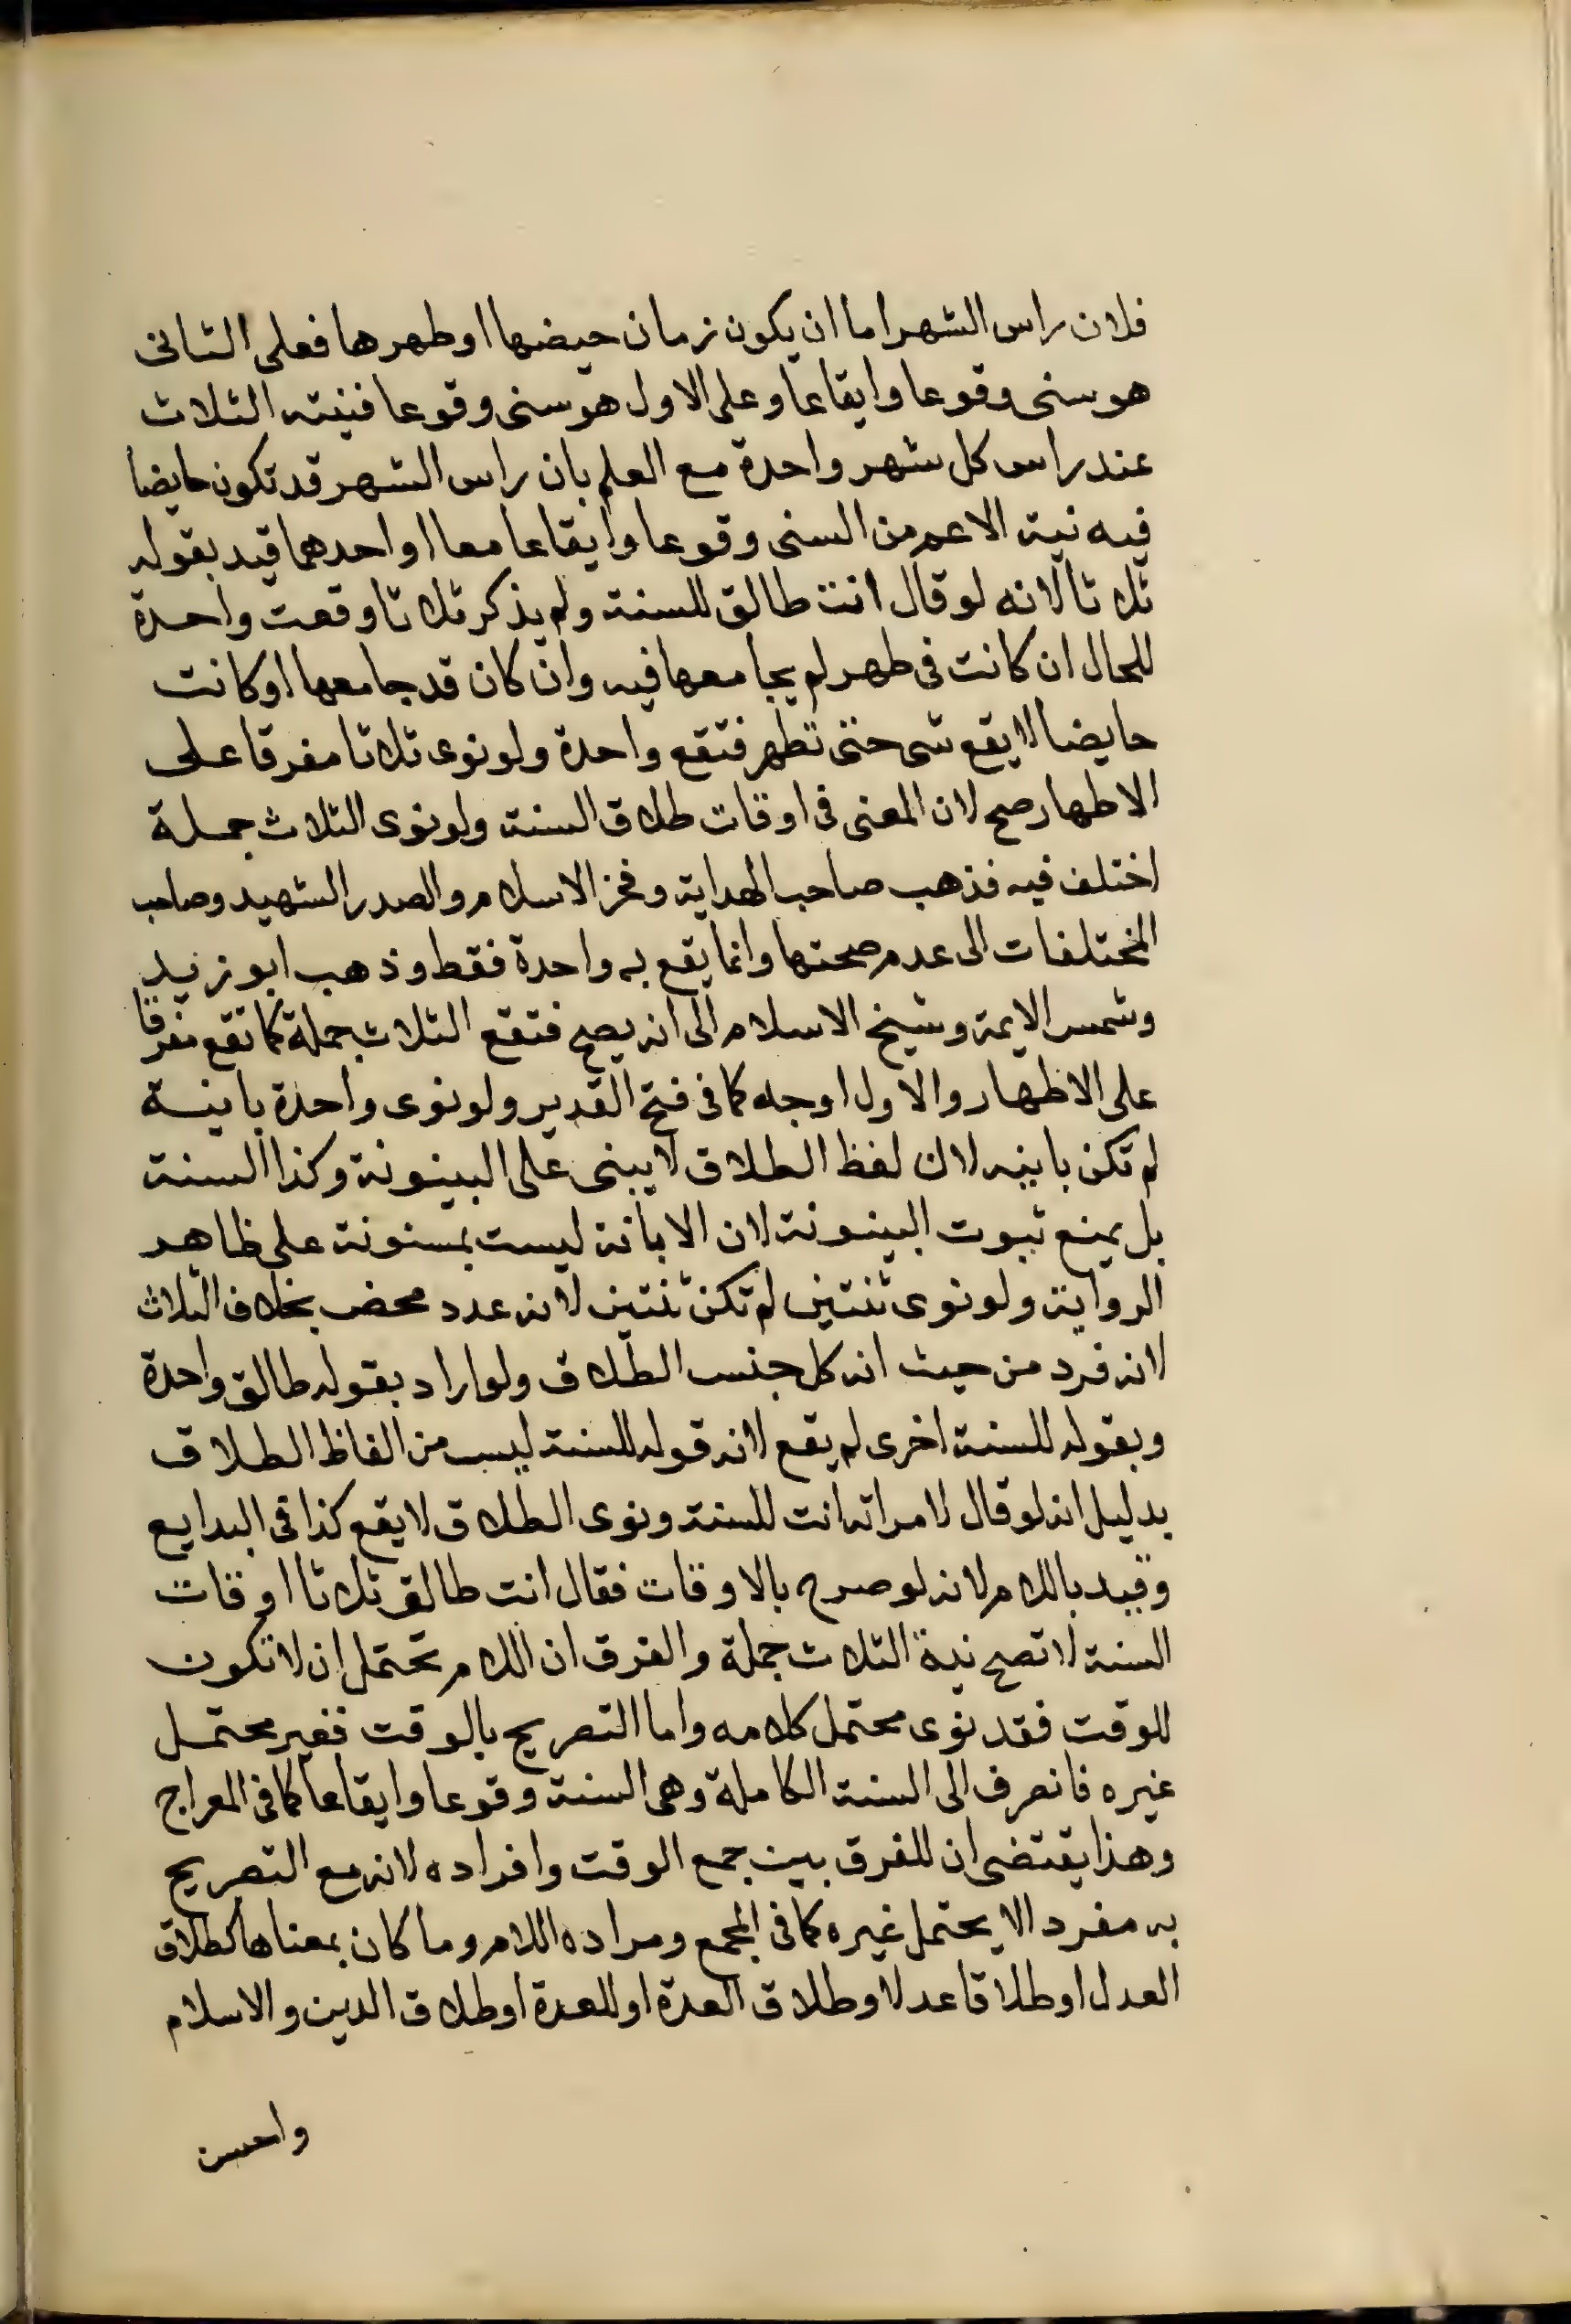 فلان راس الشهر اما ان يكون زمان حيضها او طهرها فعلى الثانى
هو سنى وقوعا وايقاعا وعلى الاول هو سنى وقوعا فنيته الثلاث
عند راس كل شهر واحدة مع العلم بان راس الشهر قد تكون حايضا
فيه نية الاعم من السنى وقوعا وايقاعا معا او احدهما قيد بقوله
ثلاثا لانه لو قال انت طالق للسنة ولم يذكر ثلاثا وقعت واحدة
للحال ان كانت فى طهر لم يجامعها فيه وان كان قد جامعها او كانت
حايضا لا يقع شى حتى تطهر فتقع واحدة ولو نوى ثلاثا مفرقا على
الاطهار صح لان المعنى فى اوقات طلاق السنة ولو نوى الثلاث جملة
اختلف فيه فذهب صاحب الهداية وفخر الاسلام والصدر الشهيد وصاحب
المختلفات الى عدم صحتها وانما يقع به واحدة فقط وذهب ابو زيد
وشمس الايمة وشيخ الاسلام الى انه يصح فتقع الثلاث جملة كما تقع مفرقا
على الاطهار والاول اوجه كما فى فتح القدير ولو نوى واحدة باينة
لم تكن باينه لان لفظ الطلاق لا يبنى على البينونة وكذا السنة
بل يمنع ثبوت البينونة لان الابانة ليست بمسنونة على ظاهر
الرواية ولو نوى ثنتين لم تكن ثنتين لانه عدد محض بخلاف الثلاث
لانه فرد من حيث انه كل جنس الطلاق ولو اراد بقوله طالق واحدة
وبقوله للسنة اخرى لم يقع لانه قوله للسنة ليس من الفاظ الطلاق
بدليل انه لو قال لامراته انت للسنة ونوى الطلاق لا يقع كذا فى البدايع
وقيد باللام لانه لو صرح بالاوقات فقال انت طالق ثلاثا اوقات
السنة لا تصح نية الثلاث جملة والفرق ان اللام تحتمل ان لا تكون
للوقت فقد نوى محتمل كلامه واما التصريح بالوقت فغير محتمل
غيره فانصرف الى السنة الكاملة وهى السنة وقوعا وايقاعا كما فى المعراج
وهذا يقتضى ان للفرق بين جمع الوقت وافراده لانه مع التصريح
به مفردا لا يحتمل غيره كما فى المجمع ومراده اللام وما كان بمعناها كطلاق
العدل او طلاقا عدلا وطلاق العدة او للعدة او طلاق الدين والاسلام
واحسن